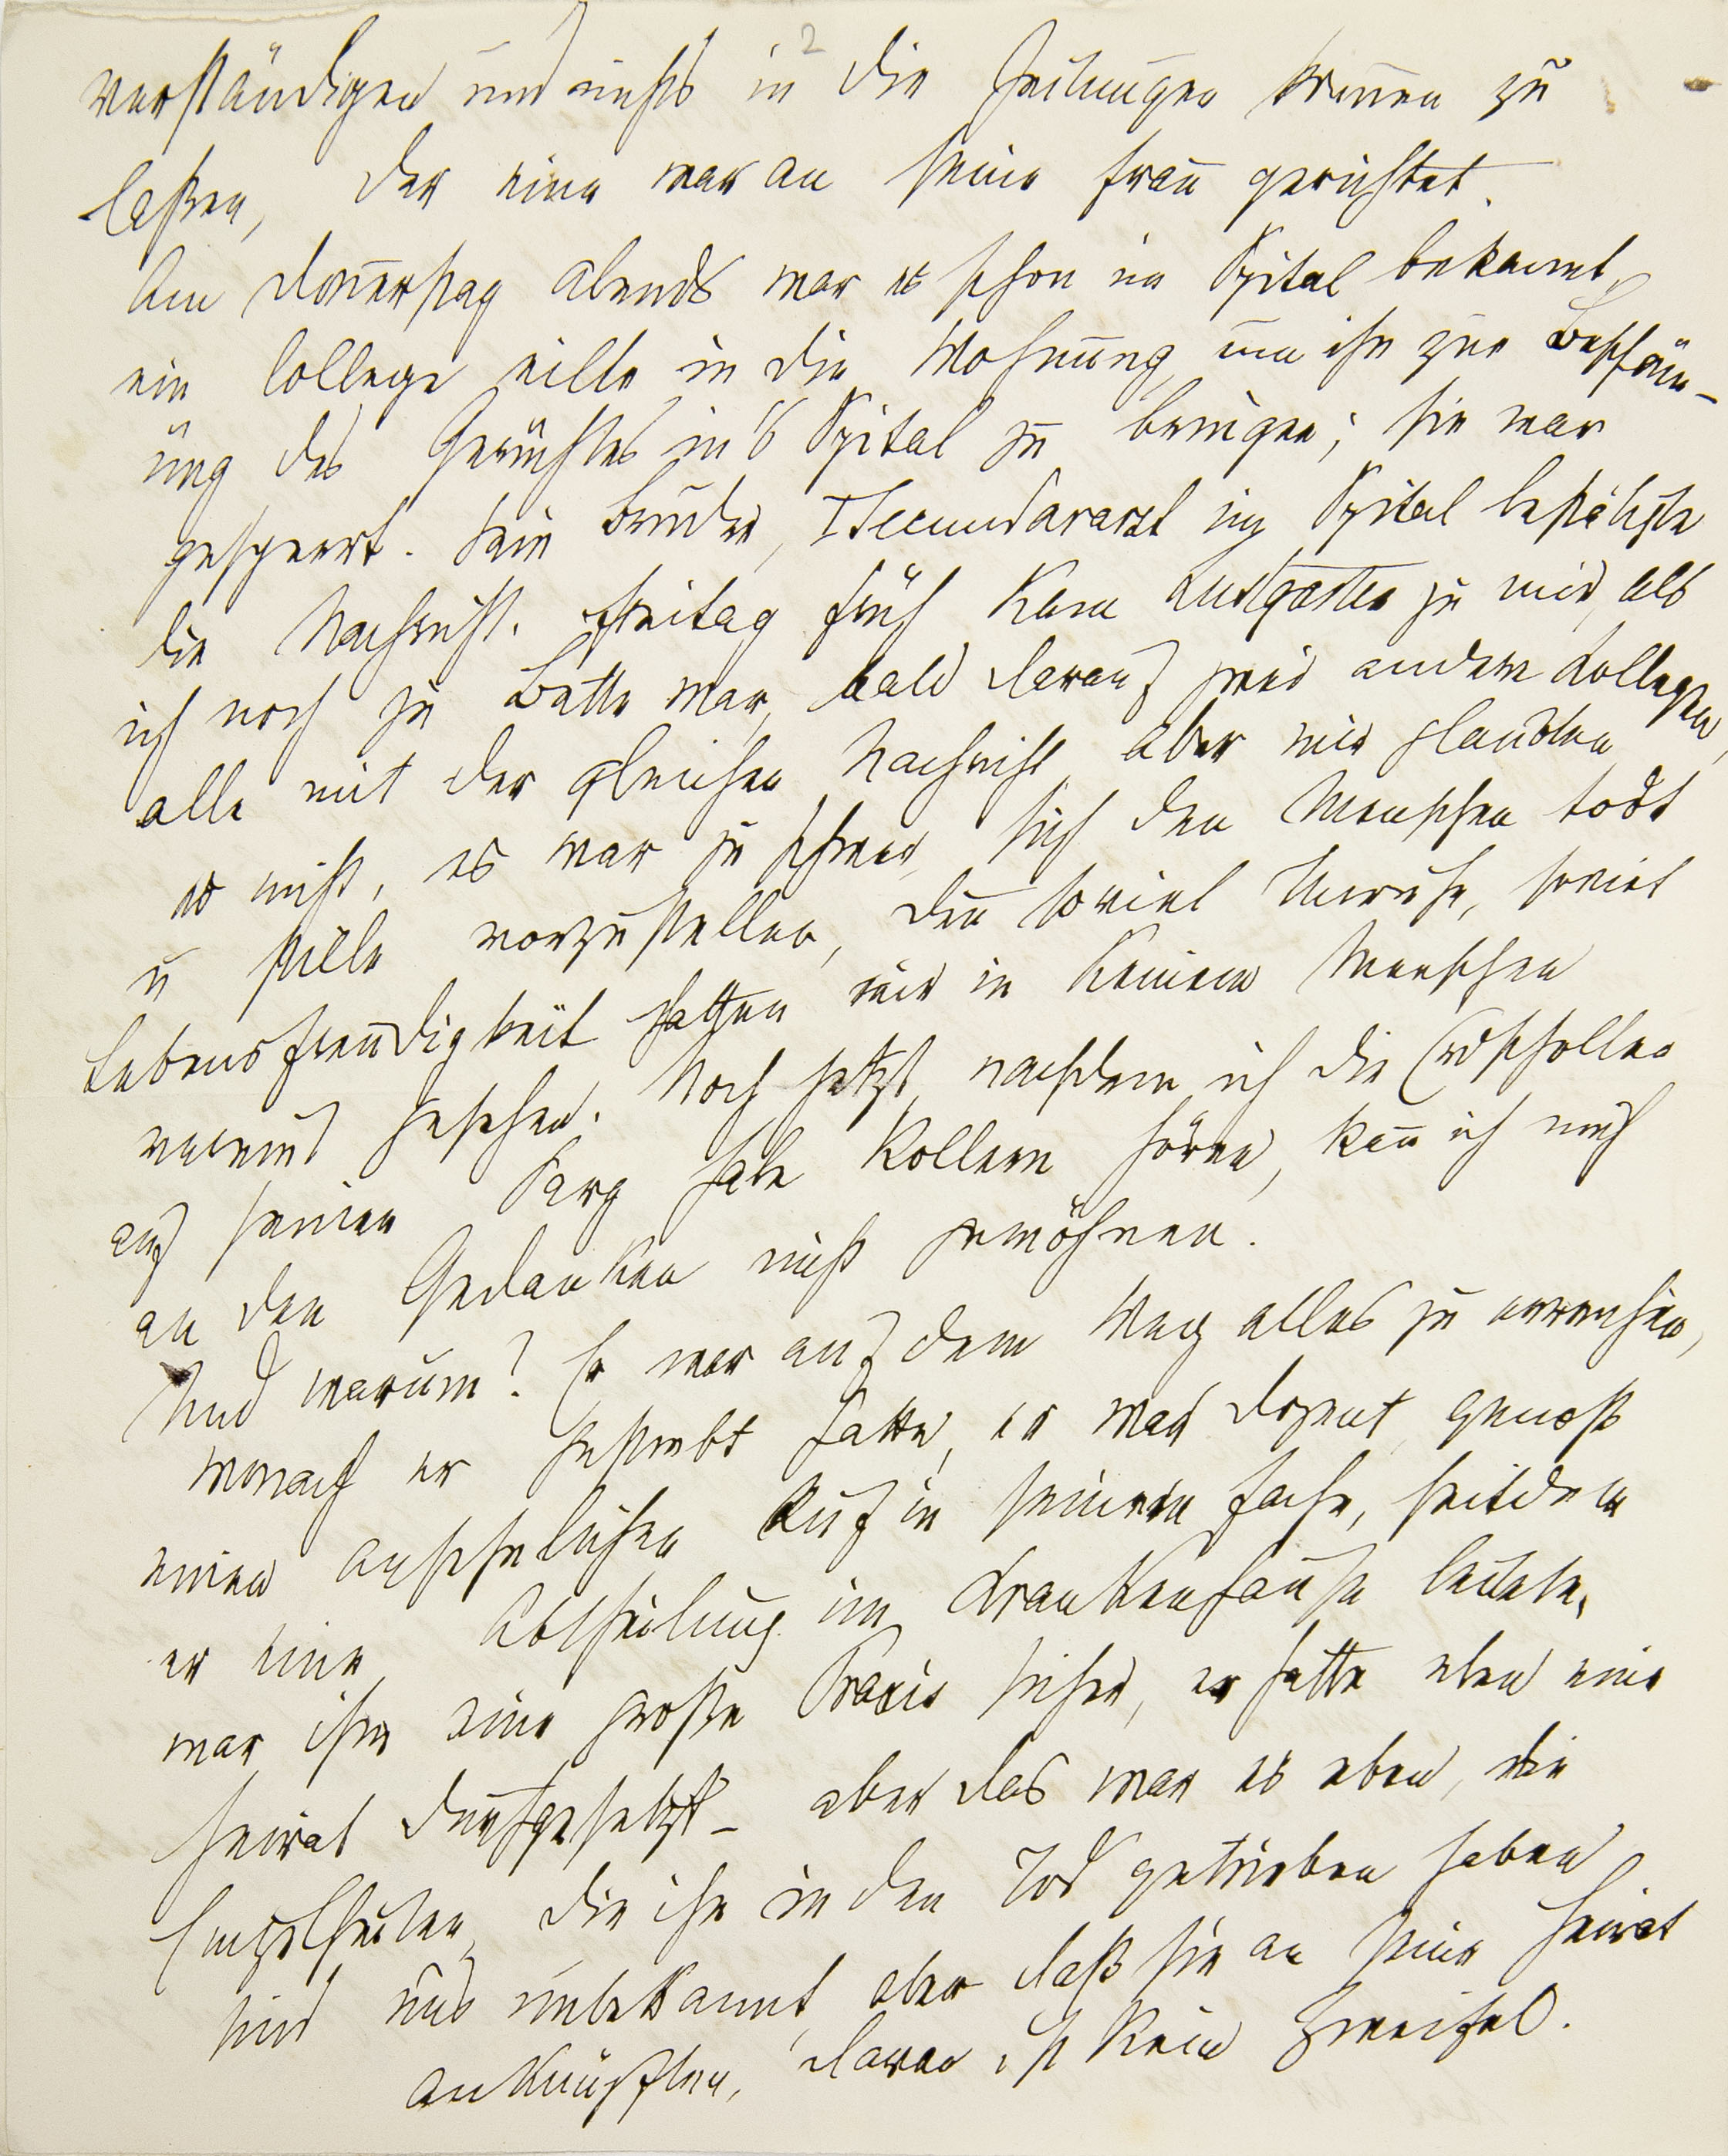 2
verständigen und nichts in die Zeitungen kom̄en zu
laßen, der eine war an seine Frau gerichtet.
Am Don̄erstag abends war es schon im Spital bekannt,
ein College eilte in die Wohnung um ihn zur Beschäm-
ung des Gerüchtes in's Spital zu bringen; sie war
gesperrt. Sein Bruder, Secundararzt im Spital bestätigte
die Nachricht. Freitag früh kam Lustgarten zu mir, als
ich noch zu Bette war, bald darauf zwei andere Kollegen,
alle mit der gleichen Nachricht, aber wir glaubten
es nicht, es war zu schwer, sich den Menschen todt
u stille vorzustellen, den̄ soviel Unruhe, soviel
Lebensfreudigkeit hatten wir in keinem Menschen
vereint gesehen. Noch jetzt, nachdem ich die Erdschollen
auf seinen Sarg habe kollern hören, kan̄ ich mich
an den Gedanken nicht gewöhnen.
Und warum? Er war auf dem Weg alles zu erreichen,
wonach er gestrebt hatte, er war Dozent, genoß
einen ansehnlichen Ruf in seinem Fache, seitdem
er eine Abtheilung im Krankenhause leitete,
war ihm eine große Praxis sicher, er hatte eben eine
Heirat durchgesetzt – aber das war es eben, die
Einzelheiten, die ihn in den Tod getrieben haben
sind uns unbekannt, aber daß sie an seine Heirat
anknüpften, daran ist kein Zweifel.